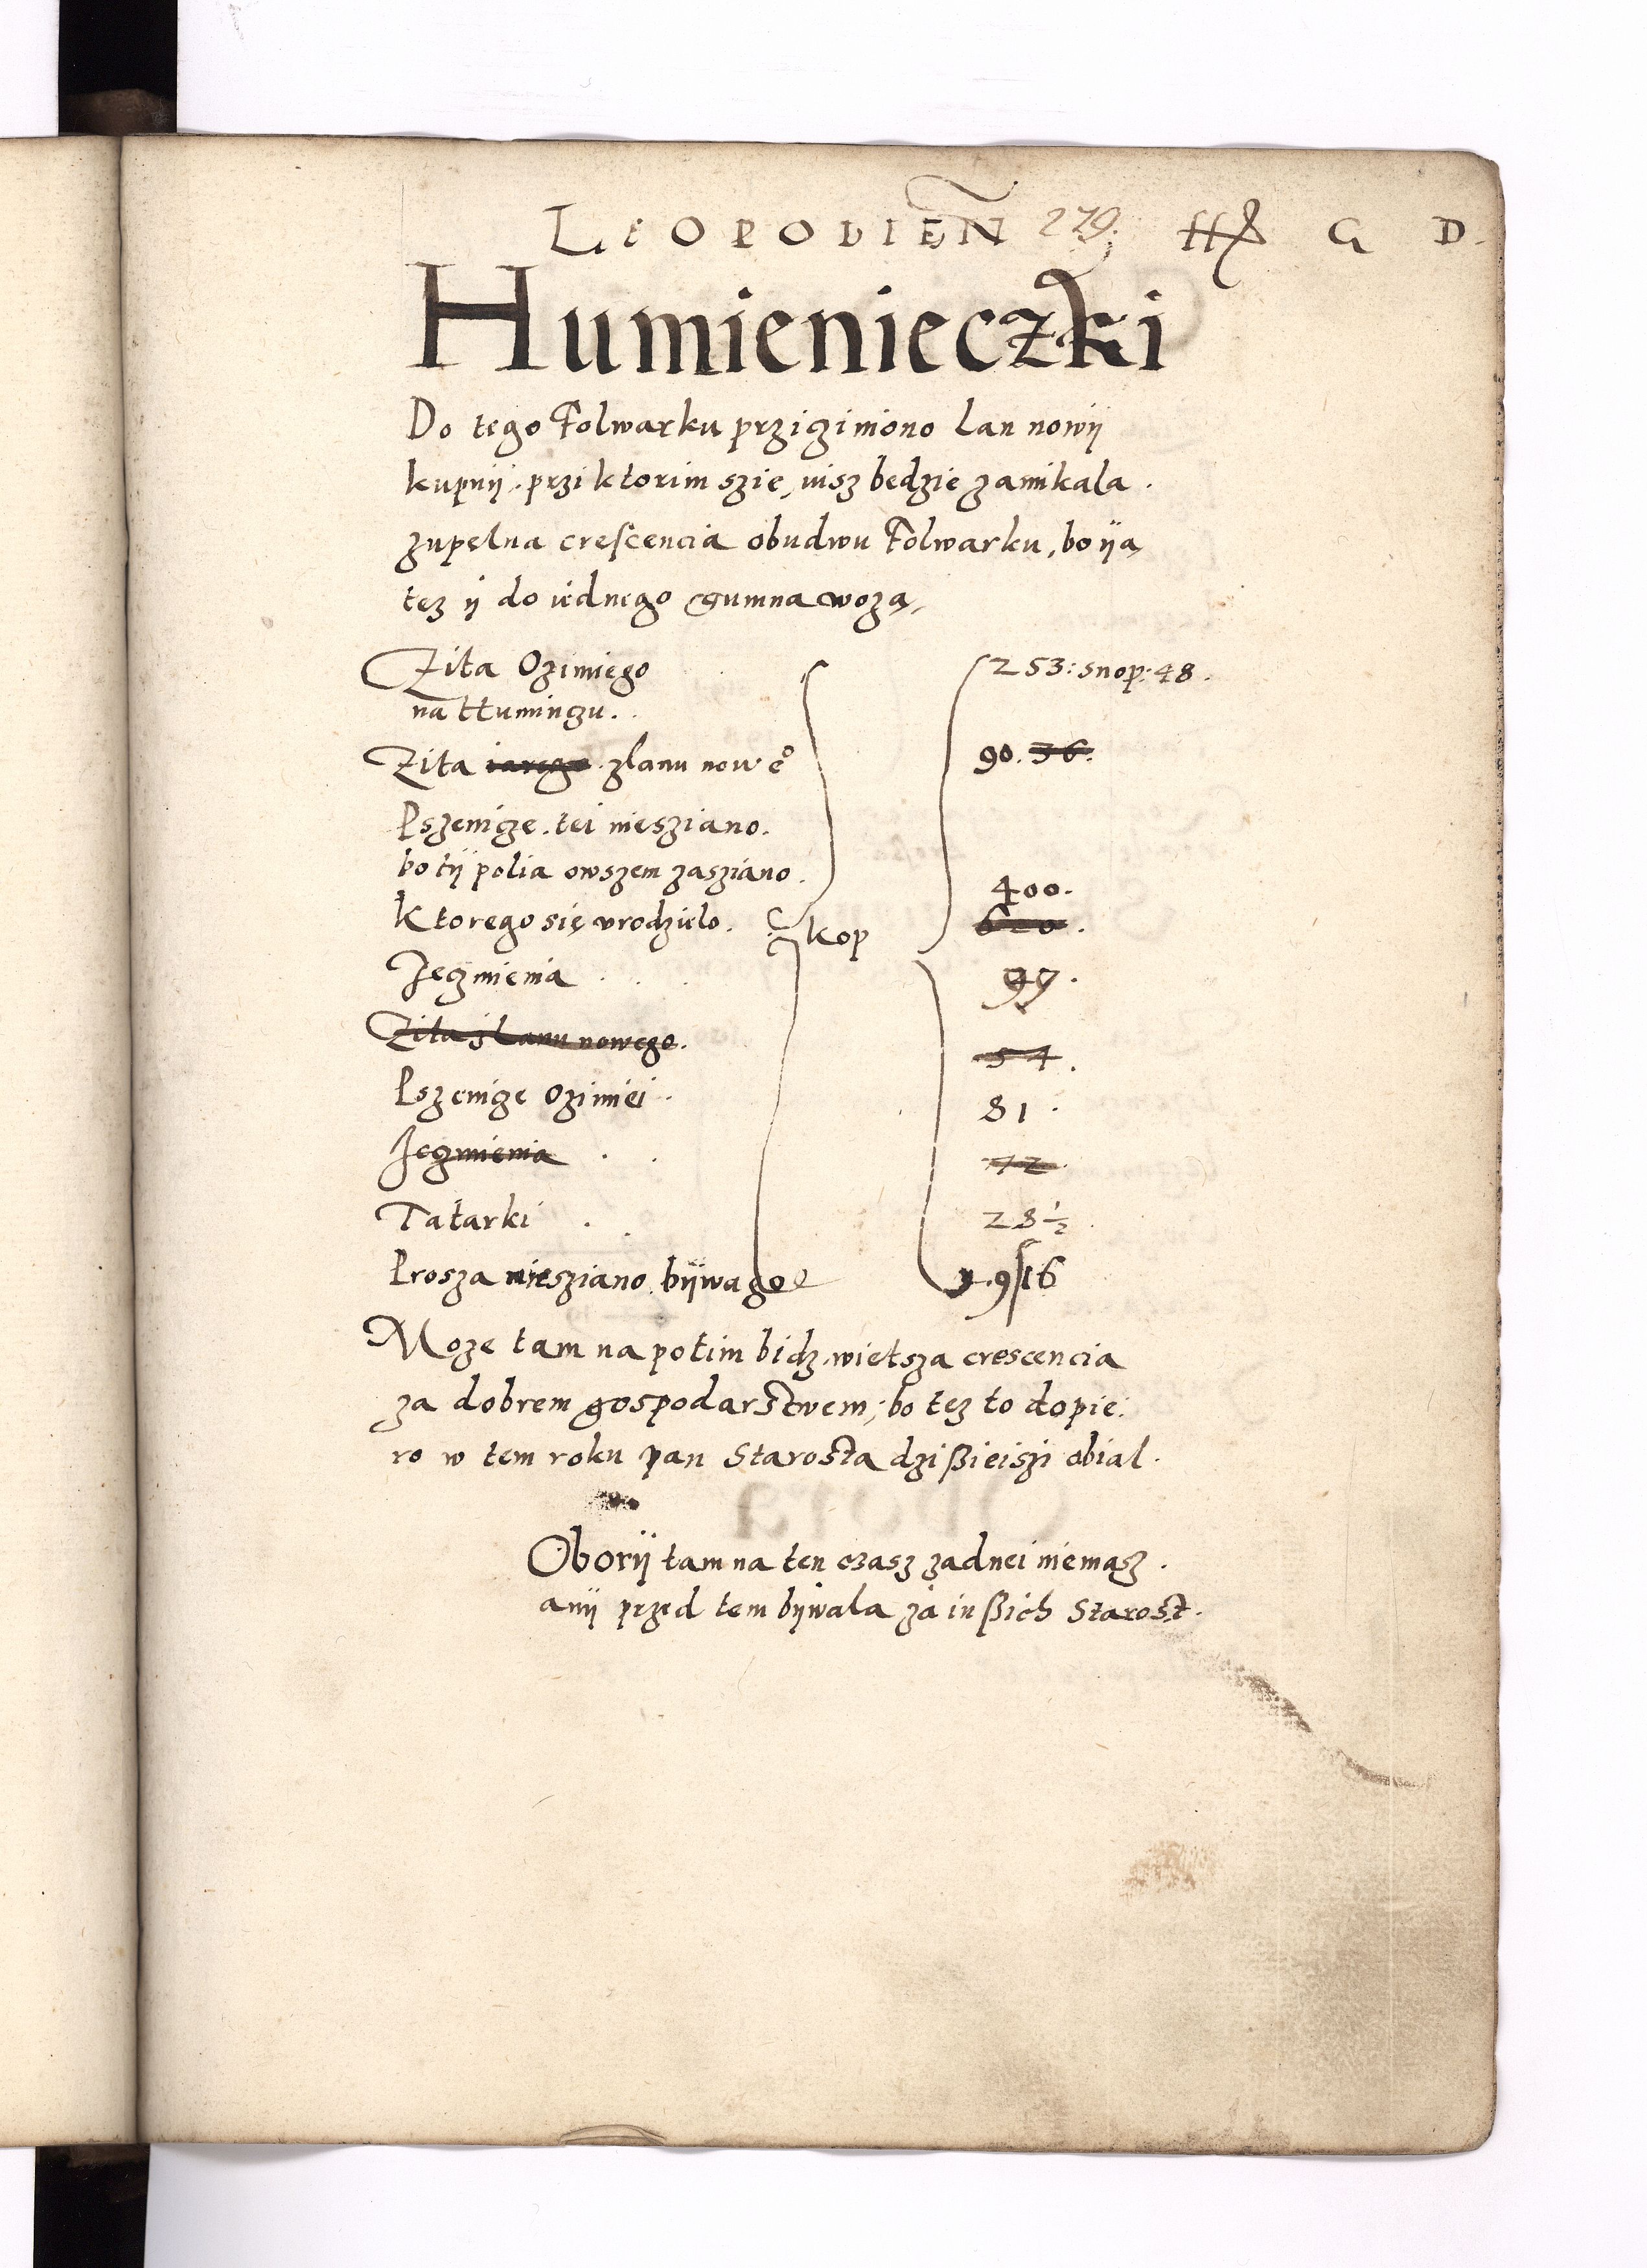 LEOPODIEÑ 279. G D.
Humienieczki
Do tego Folwarku przigimiono Lan nowÿ
kupnÿ, przi ktorim szie, nisz bedzie zamikala.
zupelna crescencia obudwu Folwarku, bo ÿą
tez ÿ do iednego gumna wozą,
Zita Ozimiego 253: snop: 48.
na ttumingu.
Zita iarego zlanu nowe° 90. 36.
Pszenige tei niesziano.
bo tÿ polia owszem zasziano. 400.
Ktorego się vrodzielo. kop 600.
Jegzmienia 99.
Zita z Lanu nowego. 54.
Pszenige Ozimiei 81.
Jegzmienia 72.
Tatarki 28½
Prosza niesziano bÿwago 9 16
Moze tam na potim bidz wietsza crescencia
za dobrem gospodarstwem; bo tez to dopie:
ro w tem roku pan Starosta dzißieiszi obial.
Oborÿ tam na ten czasz zadnei niemasz.
anÿ przed tem bÿwala za inßich Starost.